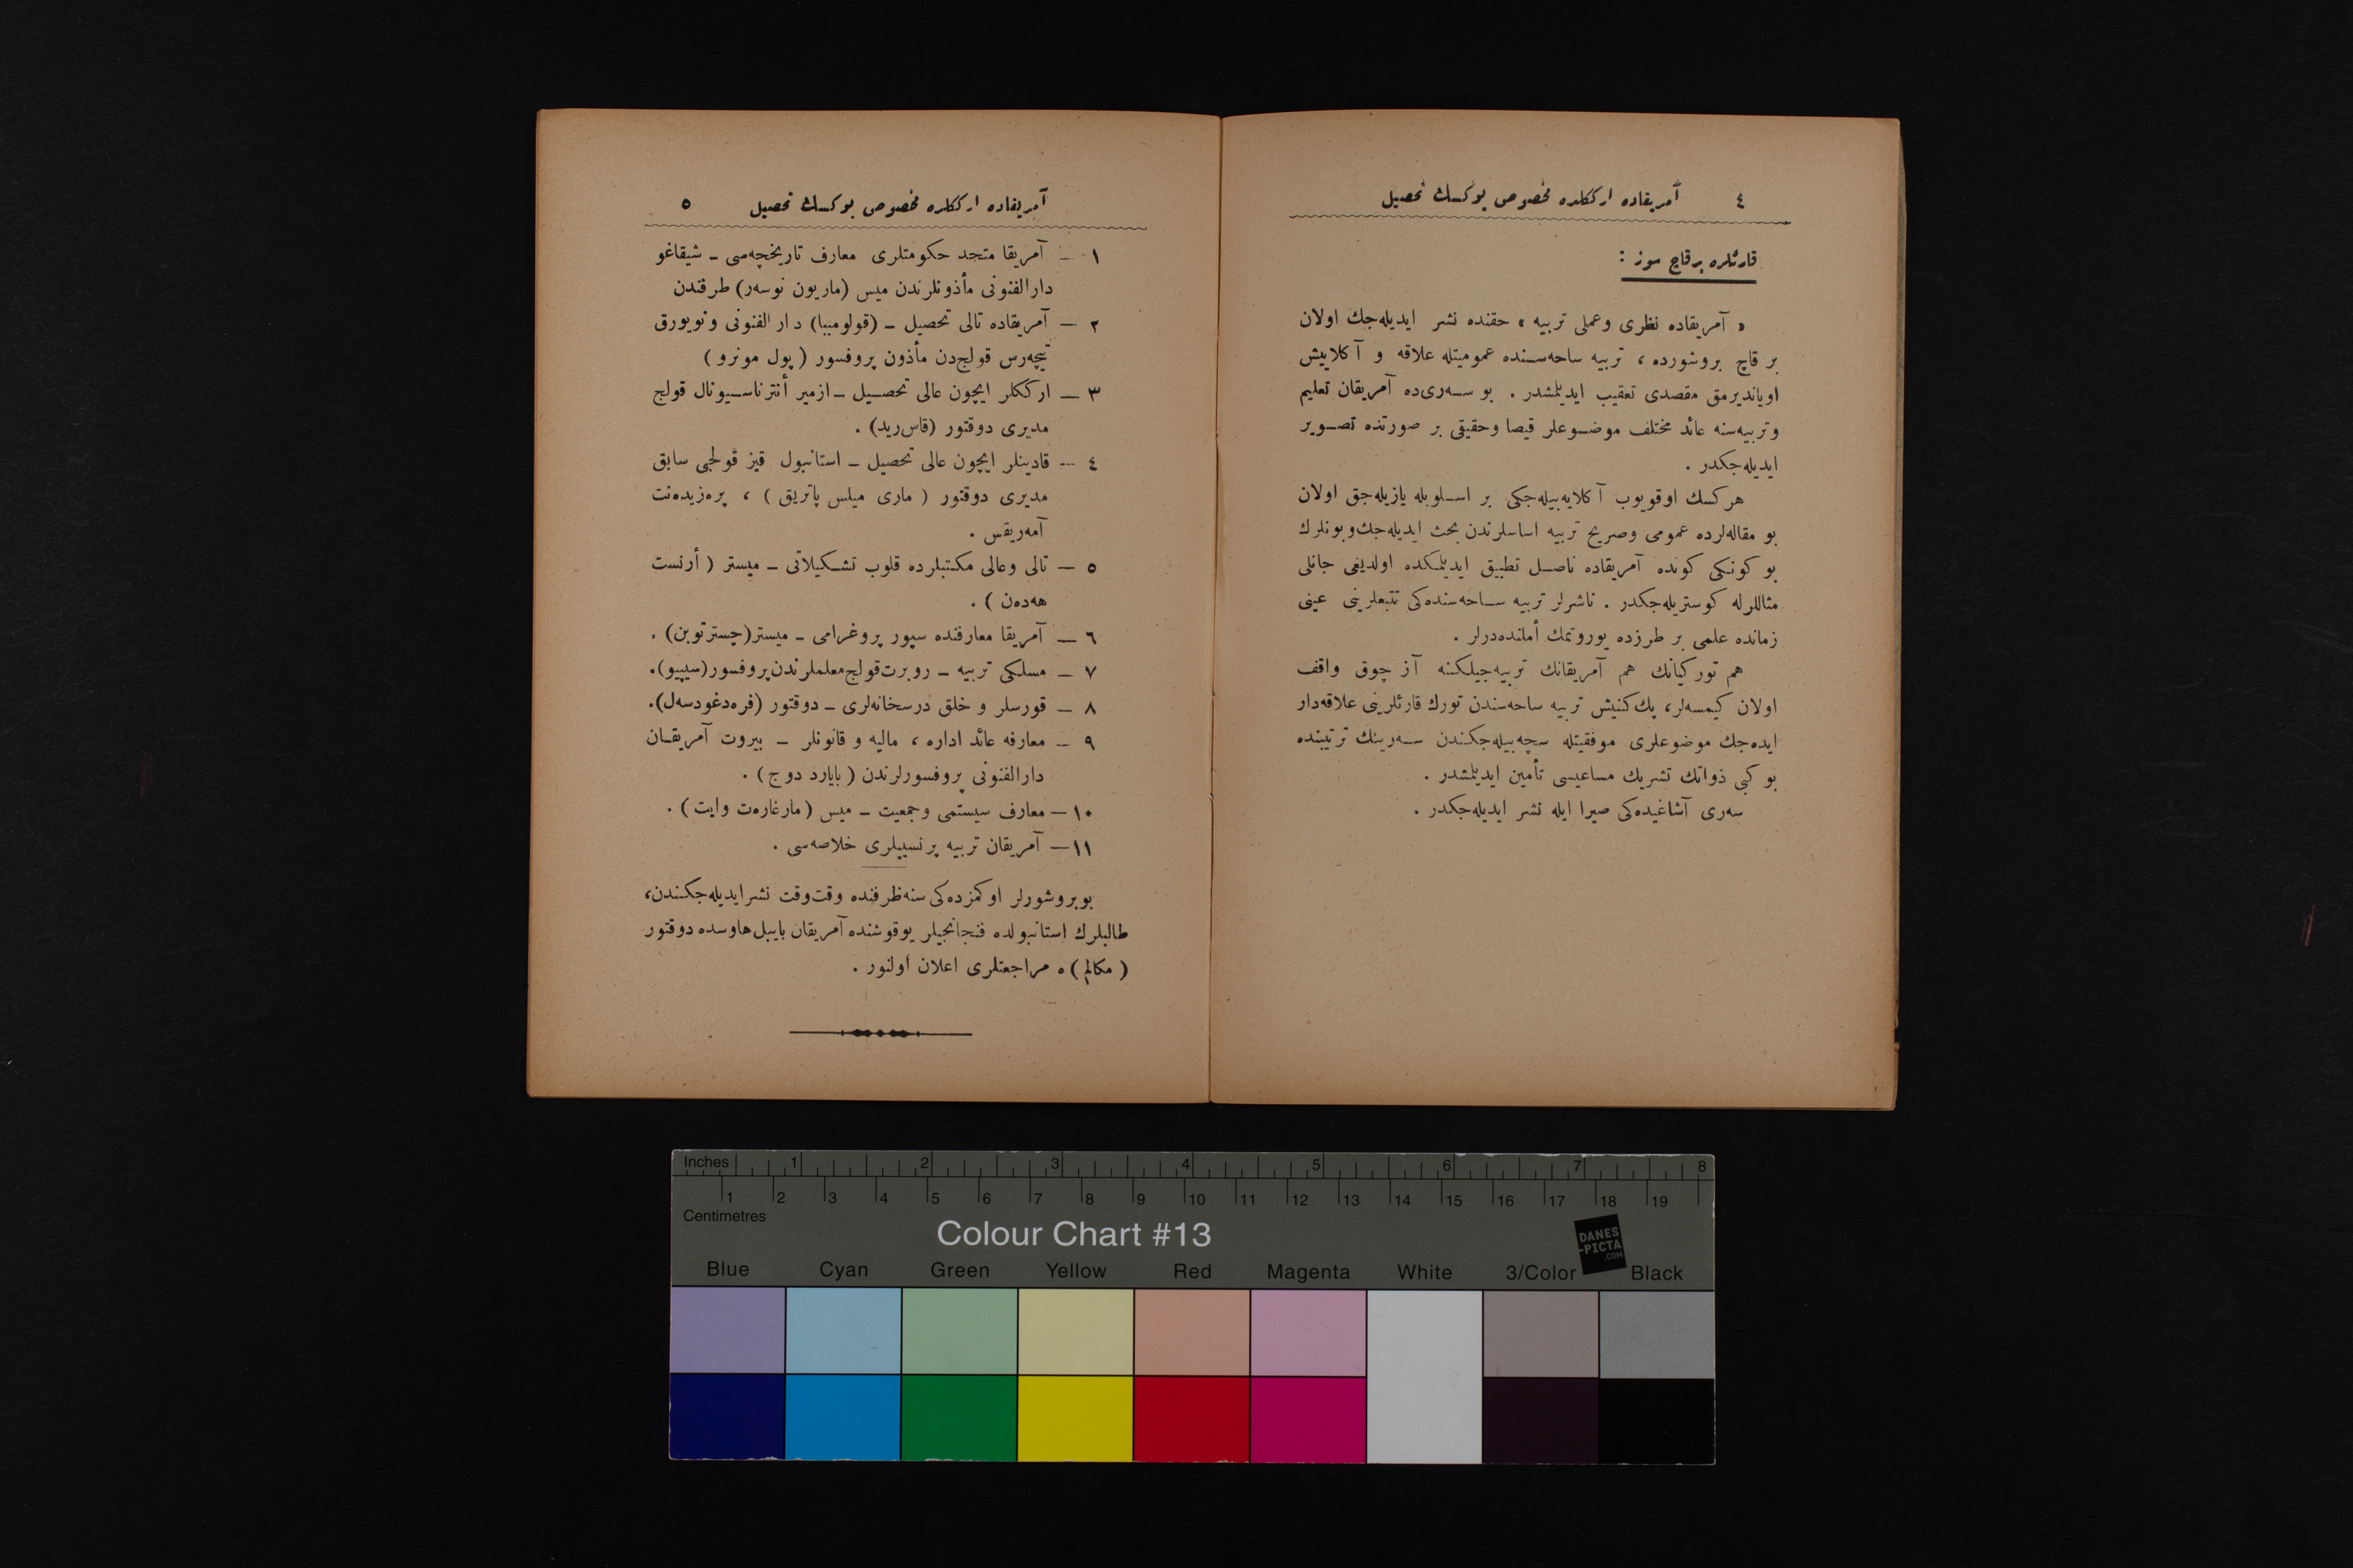 ٤ آمريقاده ارككلره مخصوص يوكسك تحصيل
قارئلره برقاچ سوز :
« آمريقاده نظرى وعملى تربيه » حقنده نشر ايديله‌جك اولان
بر قاچ بروشورده ، تربيه ساحه‌سنده عموميتله علاقه و آكلاييش
اويانديرمق مقصدى تعقيب ايديلمشدر . بو سه‌رى‌ده آمريقان تعليم
وتربيه‌سنه عائد مختلف موضوعلر قيصا وحقيقى بر صورتده تصوير
ايديله‌جكدر .
هركسك اوقويوب آكلايه‌بيله‌جكى بر اسلوبله يازيله‌جق اولان
بو مقاله‌لرده عمومى وصريح تربيه اساسلرندن بحث ايديله‌جك وبونلرك
بو كونكى كونده آمريقاده ناصل تطبيق ايديلمكده اولديغى جانلى
مثاللرله كوستريله‌جكدر . ناشرلر تربيه ساحه‌سنده‌كى تتبعلرينى عينى
زمانده علمى بر طرزده يوروتمك أملنده‌درلر .
هم توركيانك هم آمريقانك تربيه‌جيلكنه آز چوق واقف
اولان كيمسه‌لر، پك كنيش تربيه ساحه‌سندن تورك قارئلرينى علاقه‌دار
ايده‌جك موضوعلرى موفقيتله سچه‌بيله‌جكندن سه‌رينك ترتيبنده
بو كبى ذواتك تشريك مساعيسى تأمين ايديلمشدر .
سه‌رى آشاغيده‌كى صيرا ايله نشر ايديله‌جكدر .
آمريقاده ارككلره مخصوص يوكسك تحصيل ٥
١ — آمريقا متحد حكومتلرى معارف تاريخچه‌سى – شيقاغو
دارالفنونى مأذونلرندن ميس (ماريون نوسه‌ر) طرفندن
٢ — آمريقاده تالى تحصيل – (قولومبيا) دارالفنونى ونويورق
تيچه‌رس قولج‌دن مأذون پروفسور (پول مونرو)
٣ — ارككلر ايچون عالى تحصيل – ازمير أنترناسيونال قولج
مديرى دوقتور (قاس‌ريد) .
٤ — قادينلر ايچون عالى تحصيل – استانبول قيز قولجى سابق
مديرى دوقتور ( مارى ميلس پاتريق ) ، پره‌زيده‌نت
آمه‌ريقس .
٥ — تالى وعالى مكتبلرده قلوب تشكيلاتى – ميستر ( أرنست
هه‌ده‌ن ) .
٦ — آمريقا معارفنده سپور پروغرامى – ميستر(چسترتوبن) .
٧ — مسلكى تربيه – روبرت‌قولج معلملرندن پروفسور(سيپيو).
٨ — قورسلر و خلق درسخانه‌لرى – دوقتور (فره‌دغودسه‌ل).
٩ — معارفه عائد اداره ، ماليه و قانونلر – بيروت آمريقان
دارالفنونى پروفسورلرندن (بايارد دوج) .
١٠ — معارف سيستمى وجمعيت – ميس (مارغاره‌ت وايت) .
١١ — آمريقان تربيه پرنسيپلرى خلاصه‌سى .
بوبروشورلر اوكمزده‌كى سنه‌ظرفنده وقت‌وقت نشرايديله‌جكندن،
طالبلرك استانبولده فنجانجيلر يوقوشنده آمريقان بايبل‌هاوسده دوقتور
( مكالم ) ه مراجعتلرى اعلان اولنور .
Inches 1 2 3 4 5 6 7 8
1 2 3 4 5 6 7 8 9 10 11 12 13 14 15 16 17 18 19
Centimetres
Colour Chart #13
DANES
-PICTA
.COM
Blue Cyan Green Yellow Red Magenta White 3/Color Black